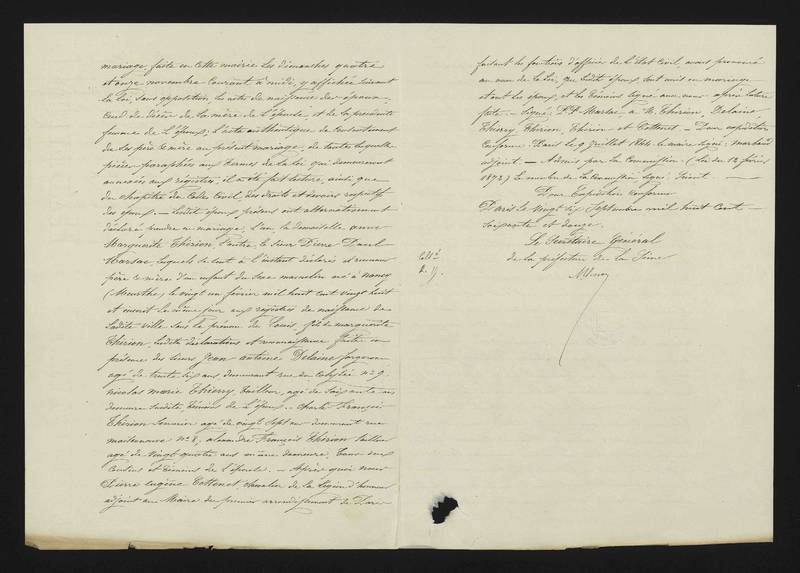 mariage, faite en cette mairie les dimanches quatre
et onze novembre courant à midi, y affichée suivant
la loi, sans opposition, les actes de naissance des époux,
celui de décès de la mère de l'épouse, et de la première
femme de l'époux; l'acte authentique de consentement
de ses père et mère au présent mariage, de toutes lesquelles
pièces paraphées aux termes de la loi qui demeureront
annexées aux registres, il a été fait lecture, ainsi que
du chapitre du Code Civil, des droits et devoirs respectifs
des époux. — Lesdits époux présens ont alternativement
déclaré prendre en mariage, l'un la demoiselle Anne
Marguerite Thérion l'autre, le sieur Pierre Paul
Marsac lesquels ont à l'instant déclaré et reconnu
père et mère d'un enfant du sexe masculin né à Nancy
(Meurthe) le vingt un février mil huit cent vingt huit
et inscrit le même jour aux registres de naissance de
ladite ville sous le prénom de Louis, fils de marguerite
Thérion, lesdites déclarations et reconnaissance faites en
présence des sieurs Jean Antoine Delaine forgeron
agé de trente six ans demeurant rue du Colysée nº 9,
nicolas marie Thierry, tailleur, agé de soixante ans
demeure susdite, témoins de l'époux. — Charles François
Thérion agé de vingt sept ans demeurant rue
nº 8, alexandre François Thérion tailleur
agé de vingt quatre ans même demeure, tous deux
cousins et témoins de l'épouse. — Après quoi nous
Pierre eugène Cottenet chevalier de la Légion d'honneur
adjoint au Maire du premier arrondissement de Paris
faisant les fonctions d'officier de l'état civil, avons prononcé
au nom de la loi, que lesdits époux sont unis en mariage
et ont les époux, et les témoins signé avec nous après lecture
faite — Signé: P. P. Marsac, A. M. Thérion, Delaine
Thierry Thérion, Thérion et Cottenet — Pour expédition
conforme. Paris le 9 juillet 1844 le maire signé: marland
adjoint. — Admis par la Commission (Loi du 12 février
1872) Le membre de la Commission signé:
Pour Expédition conforme
Paris le vingt six Septembre mil huit cent
soixante et douze.
Le Secrétaire Général
de la préfecture de la Seine